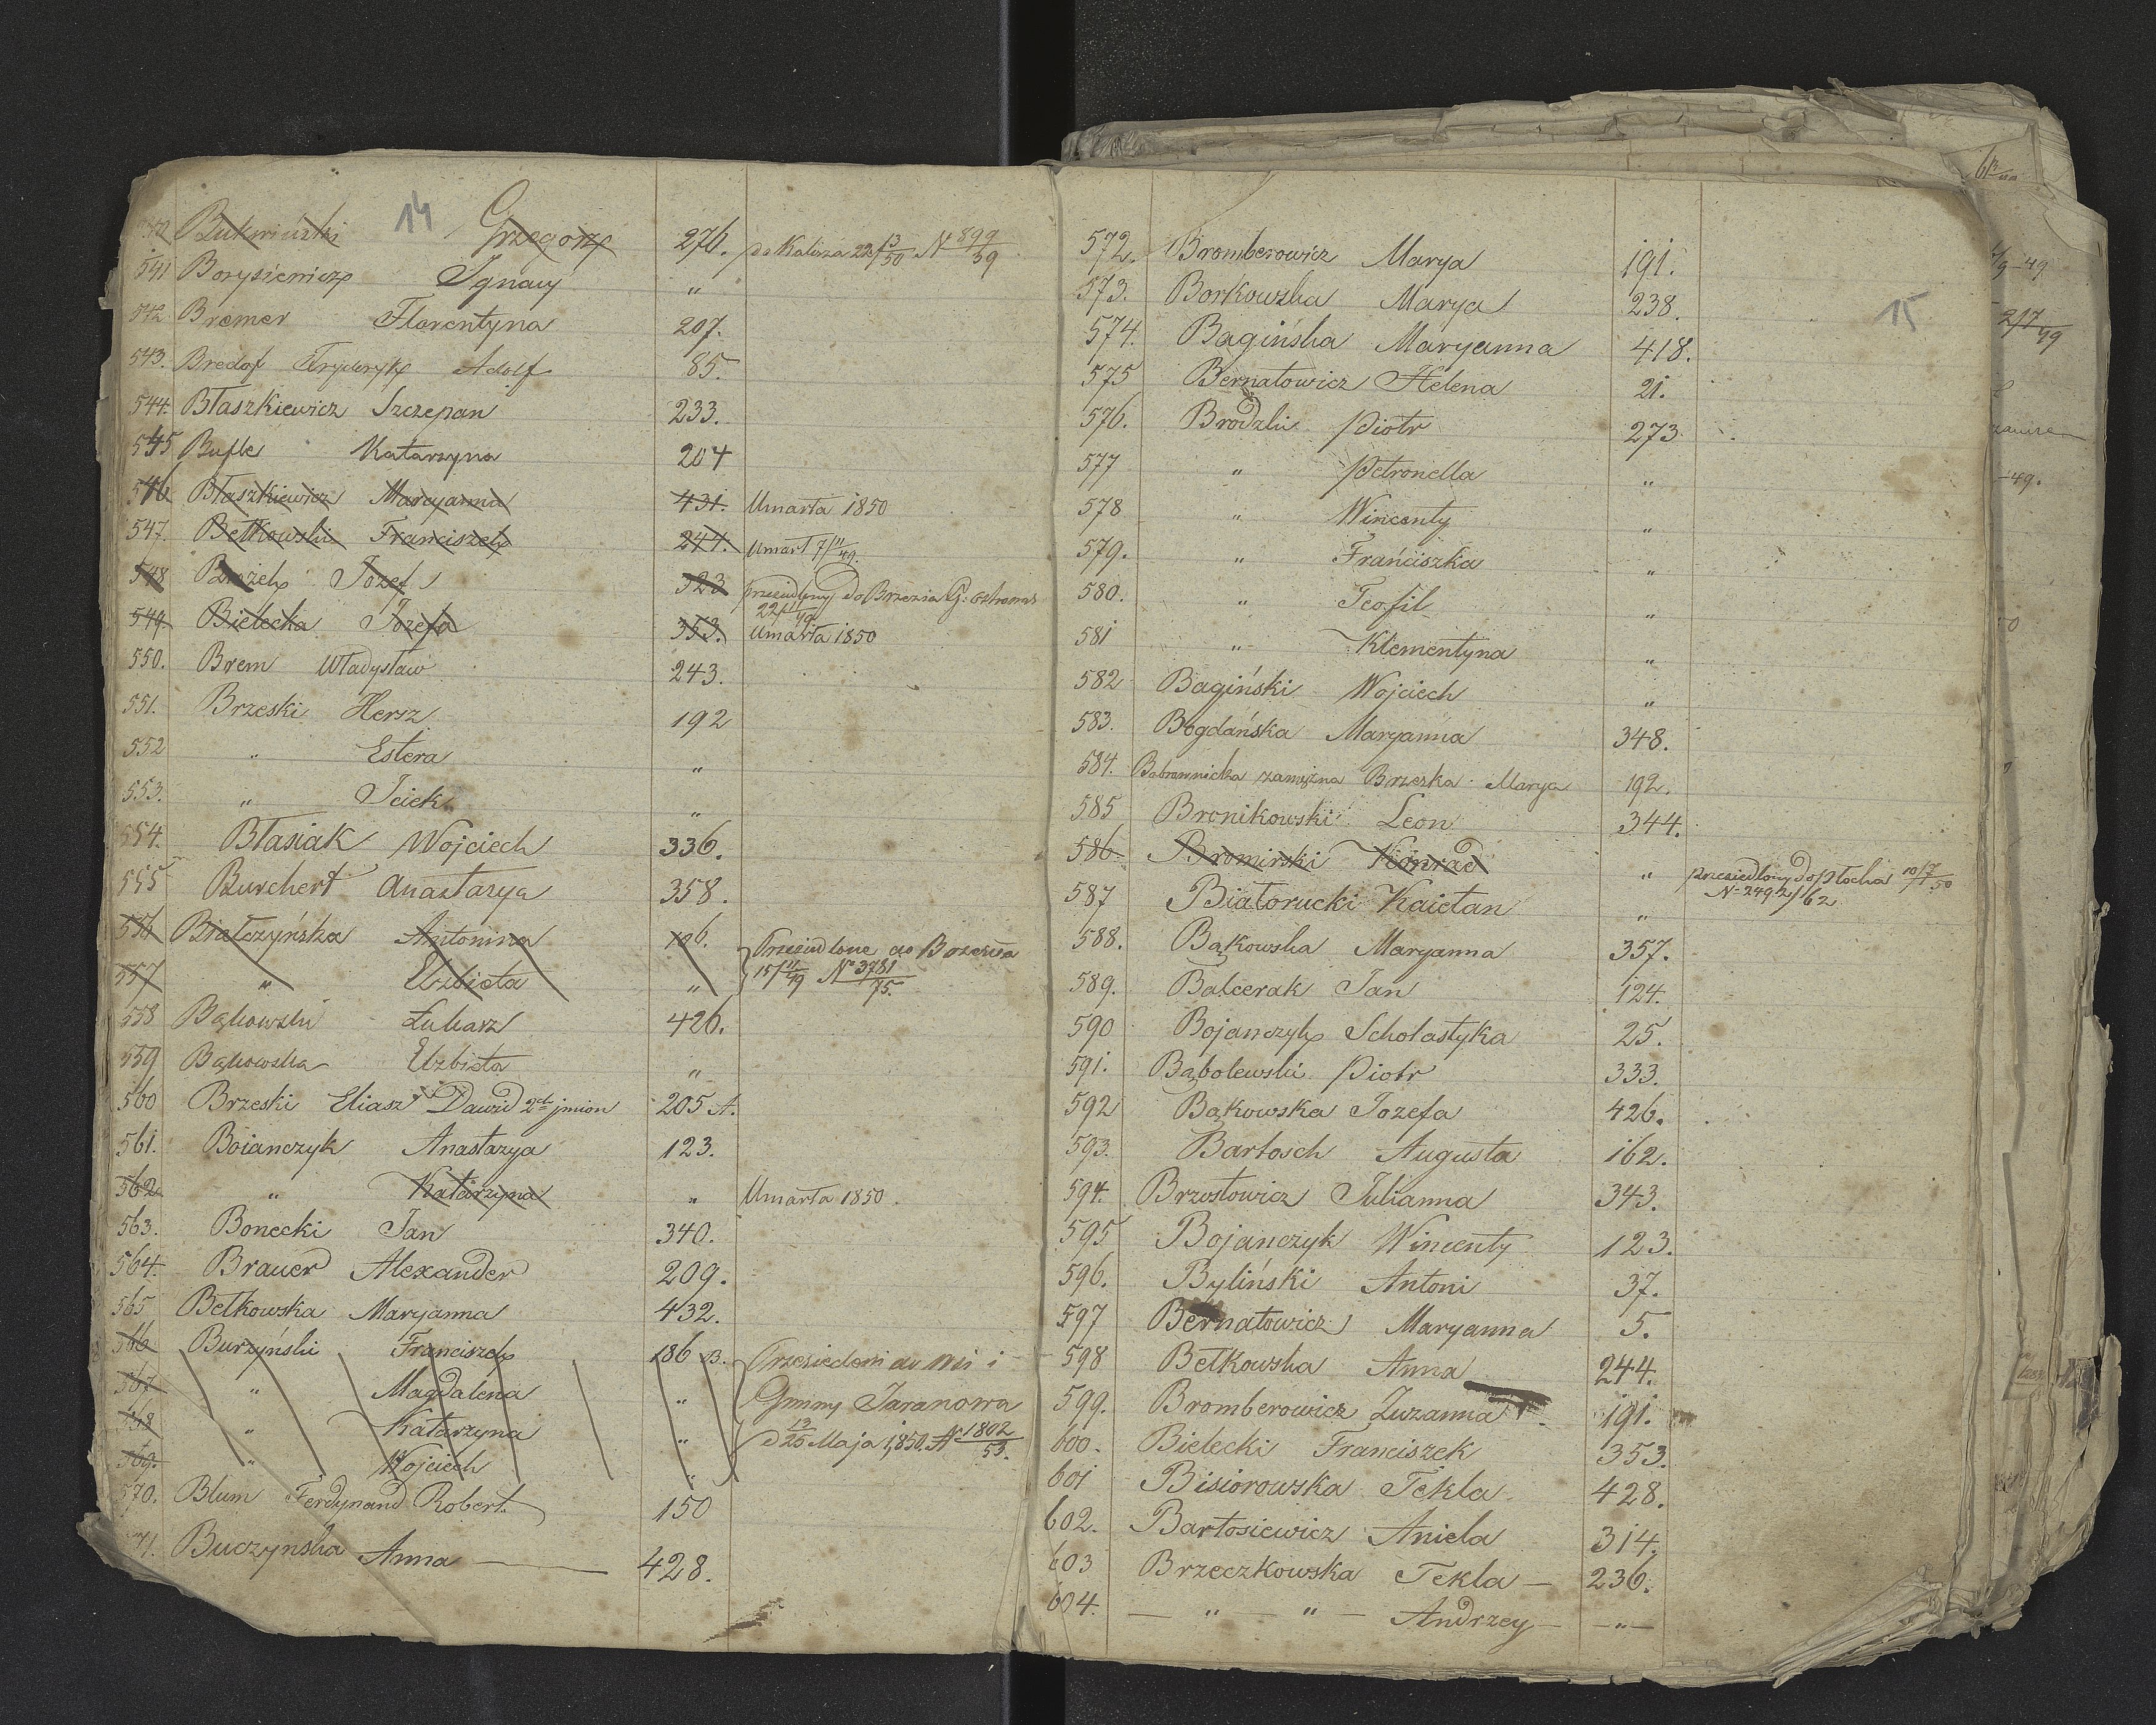 14
Grzegorz 276. do Kalisza 22/13/50 N 899/59
541 Borysiewicz Ignacy "
542 Bremer Florentyna 207.
543. Bredof Fryderyk Adolf 85.
544. Błaszkiewicz Szczepan 233.
545 Katarzyna 204
546 Błaszkiewicz Maryanna 431. Umarła 1850
547. Bełkowski Franciszek 244. Umarł 7/11/49.
548 Brożek Józef 323 do Brzezia G.
22/11/49
549. Bielecka Józefa 353. Umarła 1850
550. Brem Władysław 243.
551. Brzeski Hersz 192
552 " Estera "
553. " Iciek "
554. Błasiak Wojciech 336.
555 Burchert Anastazya 358.
556 Białczyńska Antonina 186. Przesiedlone do Brześcia
557 " Elzbieta " 15/11/49 N 3781/75.
558 Bąkowski Łukasz 426.
559 Bąkowska Elzbieta "
560 Brzeski Eliasz Dawid 2ch jmion 205 A.
561. Boianczyk Anastazya 123.
562 " Katarzyna " Umarła 1850.
563. Bonecki Jan 340.
564. Brauer Alexander 209.
565 Bełkowska Maryanna 432.
566 Burzyński Franciszek 186 B. Przesiedleni do Wsi i
567 " Magdalena " Gminy Taranowa
568 " Katarzyna " d 13/25 Maja 1850. N 1802/53.
569. " Wojciech "
570. Blum Ferdynand Robert. 150
571. Buczynska Anna — 428.
15
572. Bromberowicz Marya 191.
573. Borkowska Marya 238.
574. Bagińska Maryanna 418.
575 Bernatowicz Helena 21.
576. Brodzki Piotr 273.
577 " Petronella "
578 " Wincenty "
579. " Franciszka "
580. " Teofil "
581 " Klementyna "
582 Bagiński Wojciech "
583. Bogdańska Maryanna 348.
584. Bobrownicka zamężna Brzeska Marya 192.
585 Bronikowski Leon 344.
586 Bromirski Konrad " przesiedlony do Płocka 10/7/50
N 2492/62
587 Białorucki Kaietan "
588. Bąkowska Maryanna 357.
589. Balcerak Jan 124.
590 Bojanczyk Scholastyka 25.
591. Bąbolewski Piotr 333.
592 Bąkowska Jozefa 426.
593. Bartosch Augusta 162.
594. Brzostowicz Julianna 343.
595 Bojanczyk Wincenty 123.
596. Byliński Antoni 37.
597 Bernatowicz Maryanna 5.
598 Bełkowska Anna 244.
599. Bromberowicz Zuzanna 191.
600. Bielecki Franciszek 353.
601 Bisiorowska Tekla 428.
602. Bartosiewicz Aniela 314.
603 Brzeczkowska Tekla — 236.
604. — " — " — Andrzey — — " —